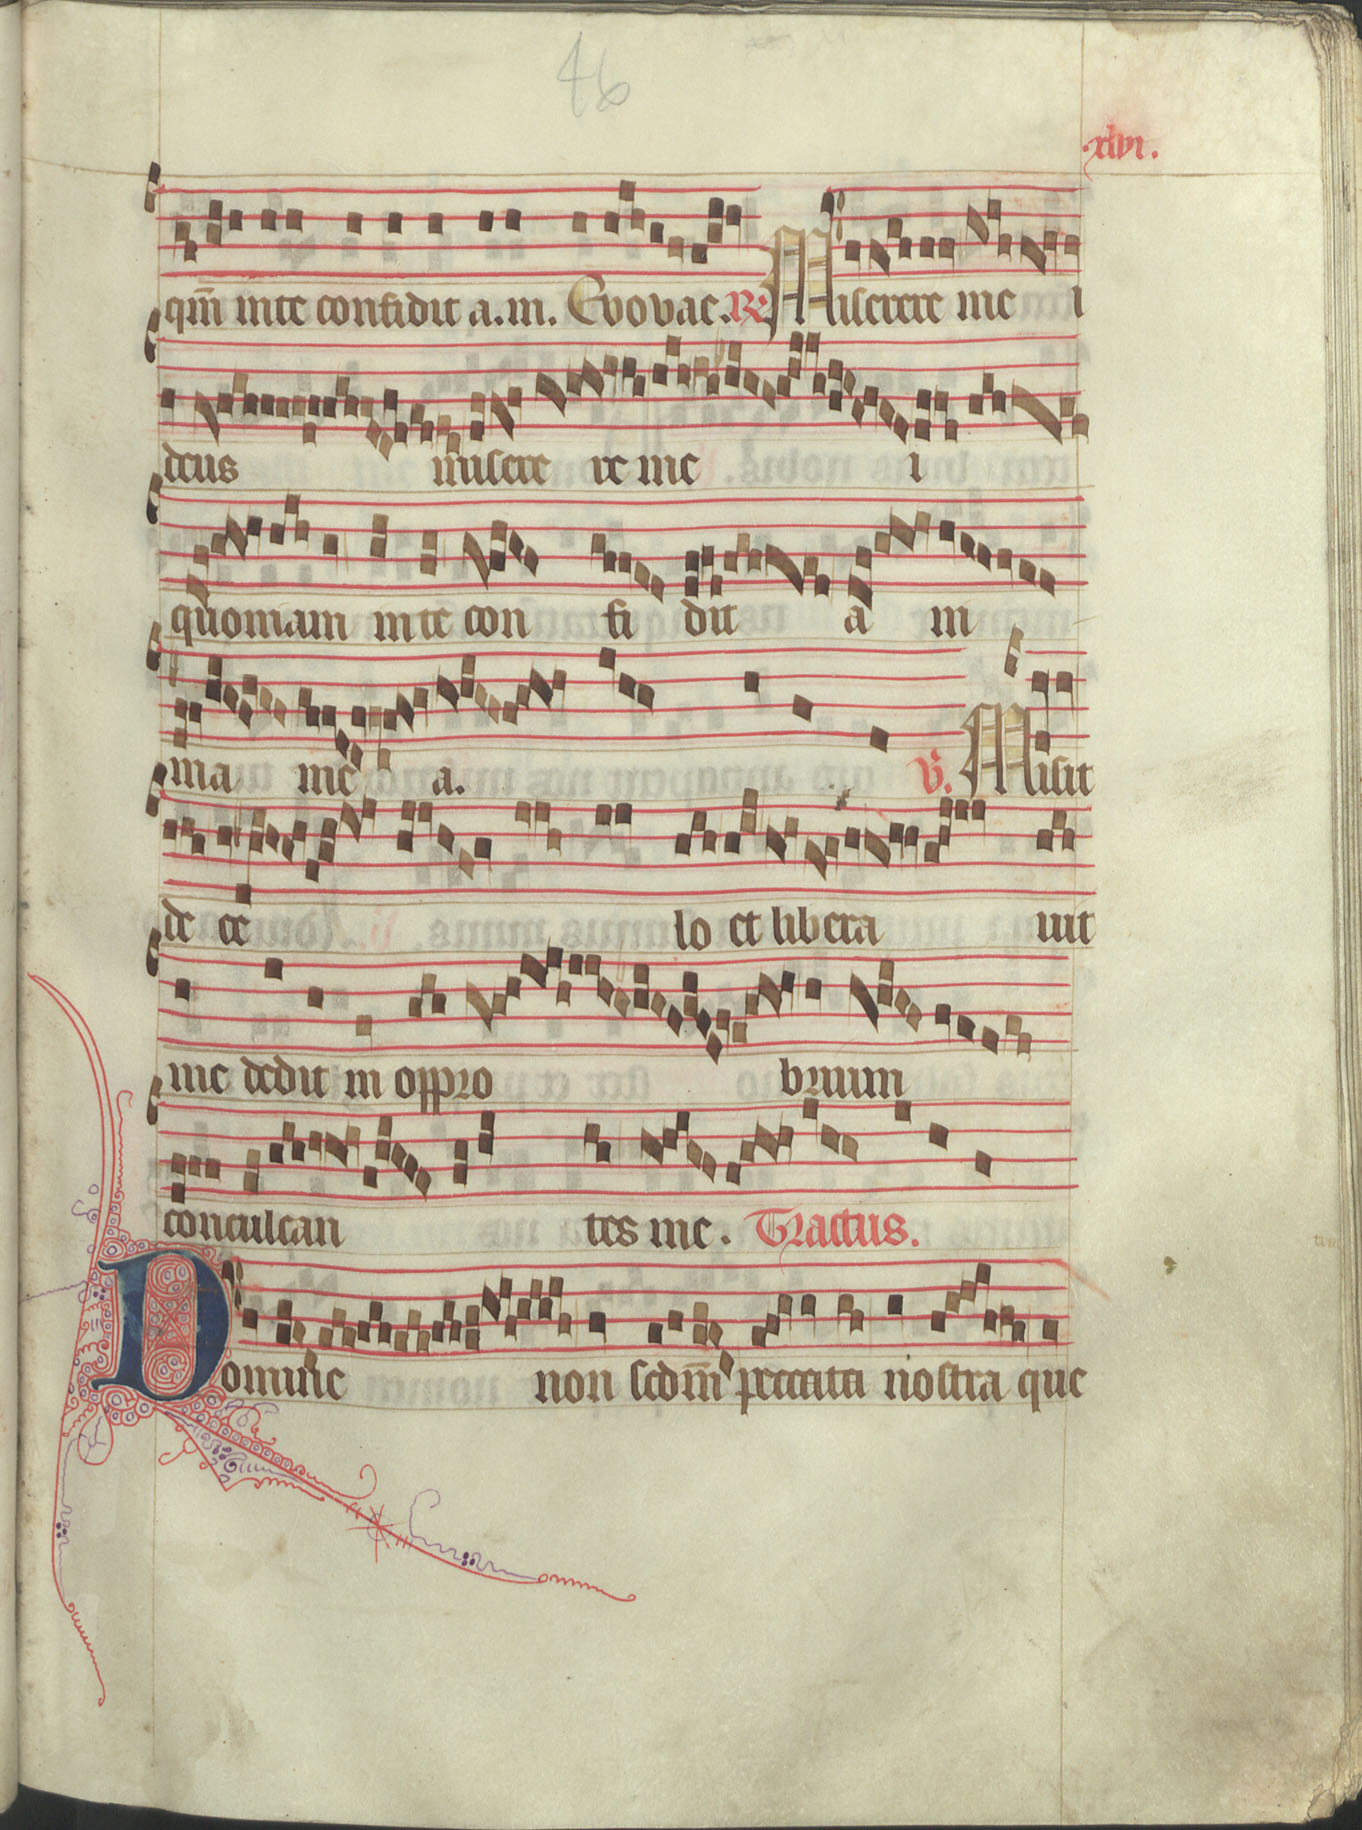 46
.xlvi.
qm̄ in te confidit a. m. Evovae. R. Miserere me i
deus misere re me i
quoniam in te con fi dit a ni
ma me a. V. Misit
de ce lo et libera uit
me dedit in oppro brium
conculcan tes me. Tractus.
Domine non scdm̄ peccata nostra que